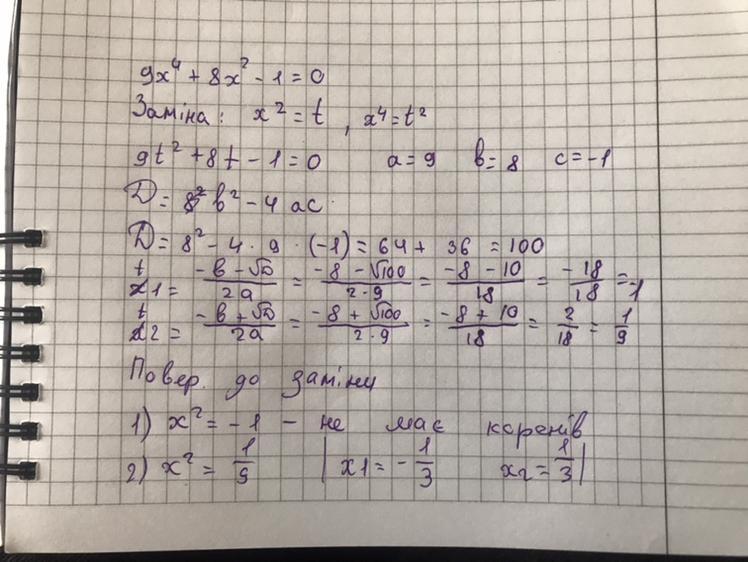 9x⁴ + 8x² - 1 = 0
Заміна: x² = t, x⁴ = t²
9t² + 8t - 1 = 0 a = 9 b = 8 c = -1
D = b² - 4ac
D = 8² - 4 · 9 · (-1) = 64 + 36 = 100
t1 = (-b - √D)/(2a) = (-8 - √100)/(2·9) = (-8 - 10)/18 = -18/18 = -1
t2 = (-b + √D)/(2a) = (-8 + √100)/(2·9) = (-8 + 10)/18 = 2/18 = 1/9
Повер. до заміни
1) x² = -1 - не має коренів
2) x² = 1/9 | x1 = -1/3 x2 = 1/3 |